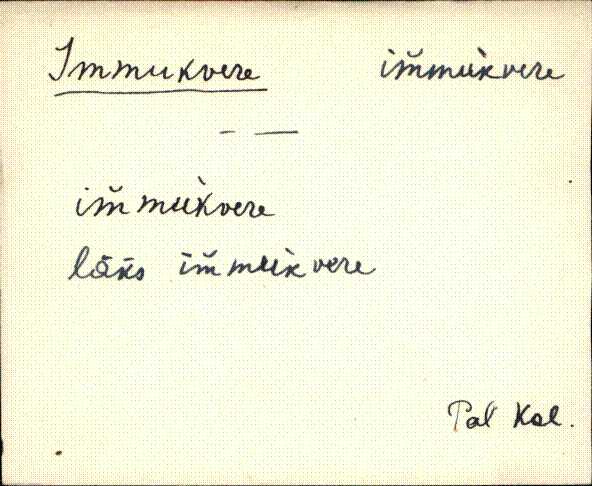 Immukvere im̆muk̀vere
im̆muk̀vere
läks im̆muk̀vere
Pal Kal.